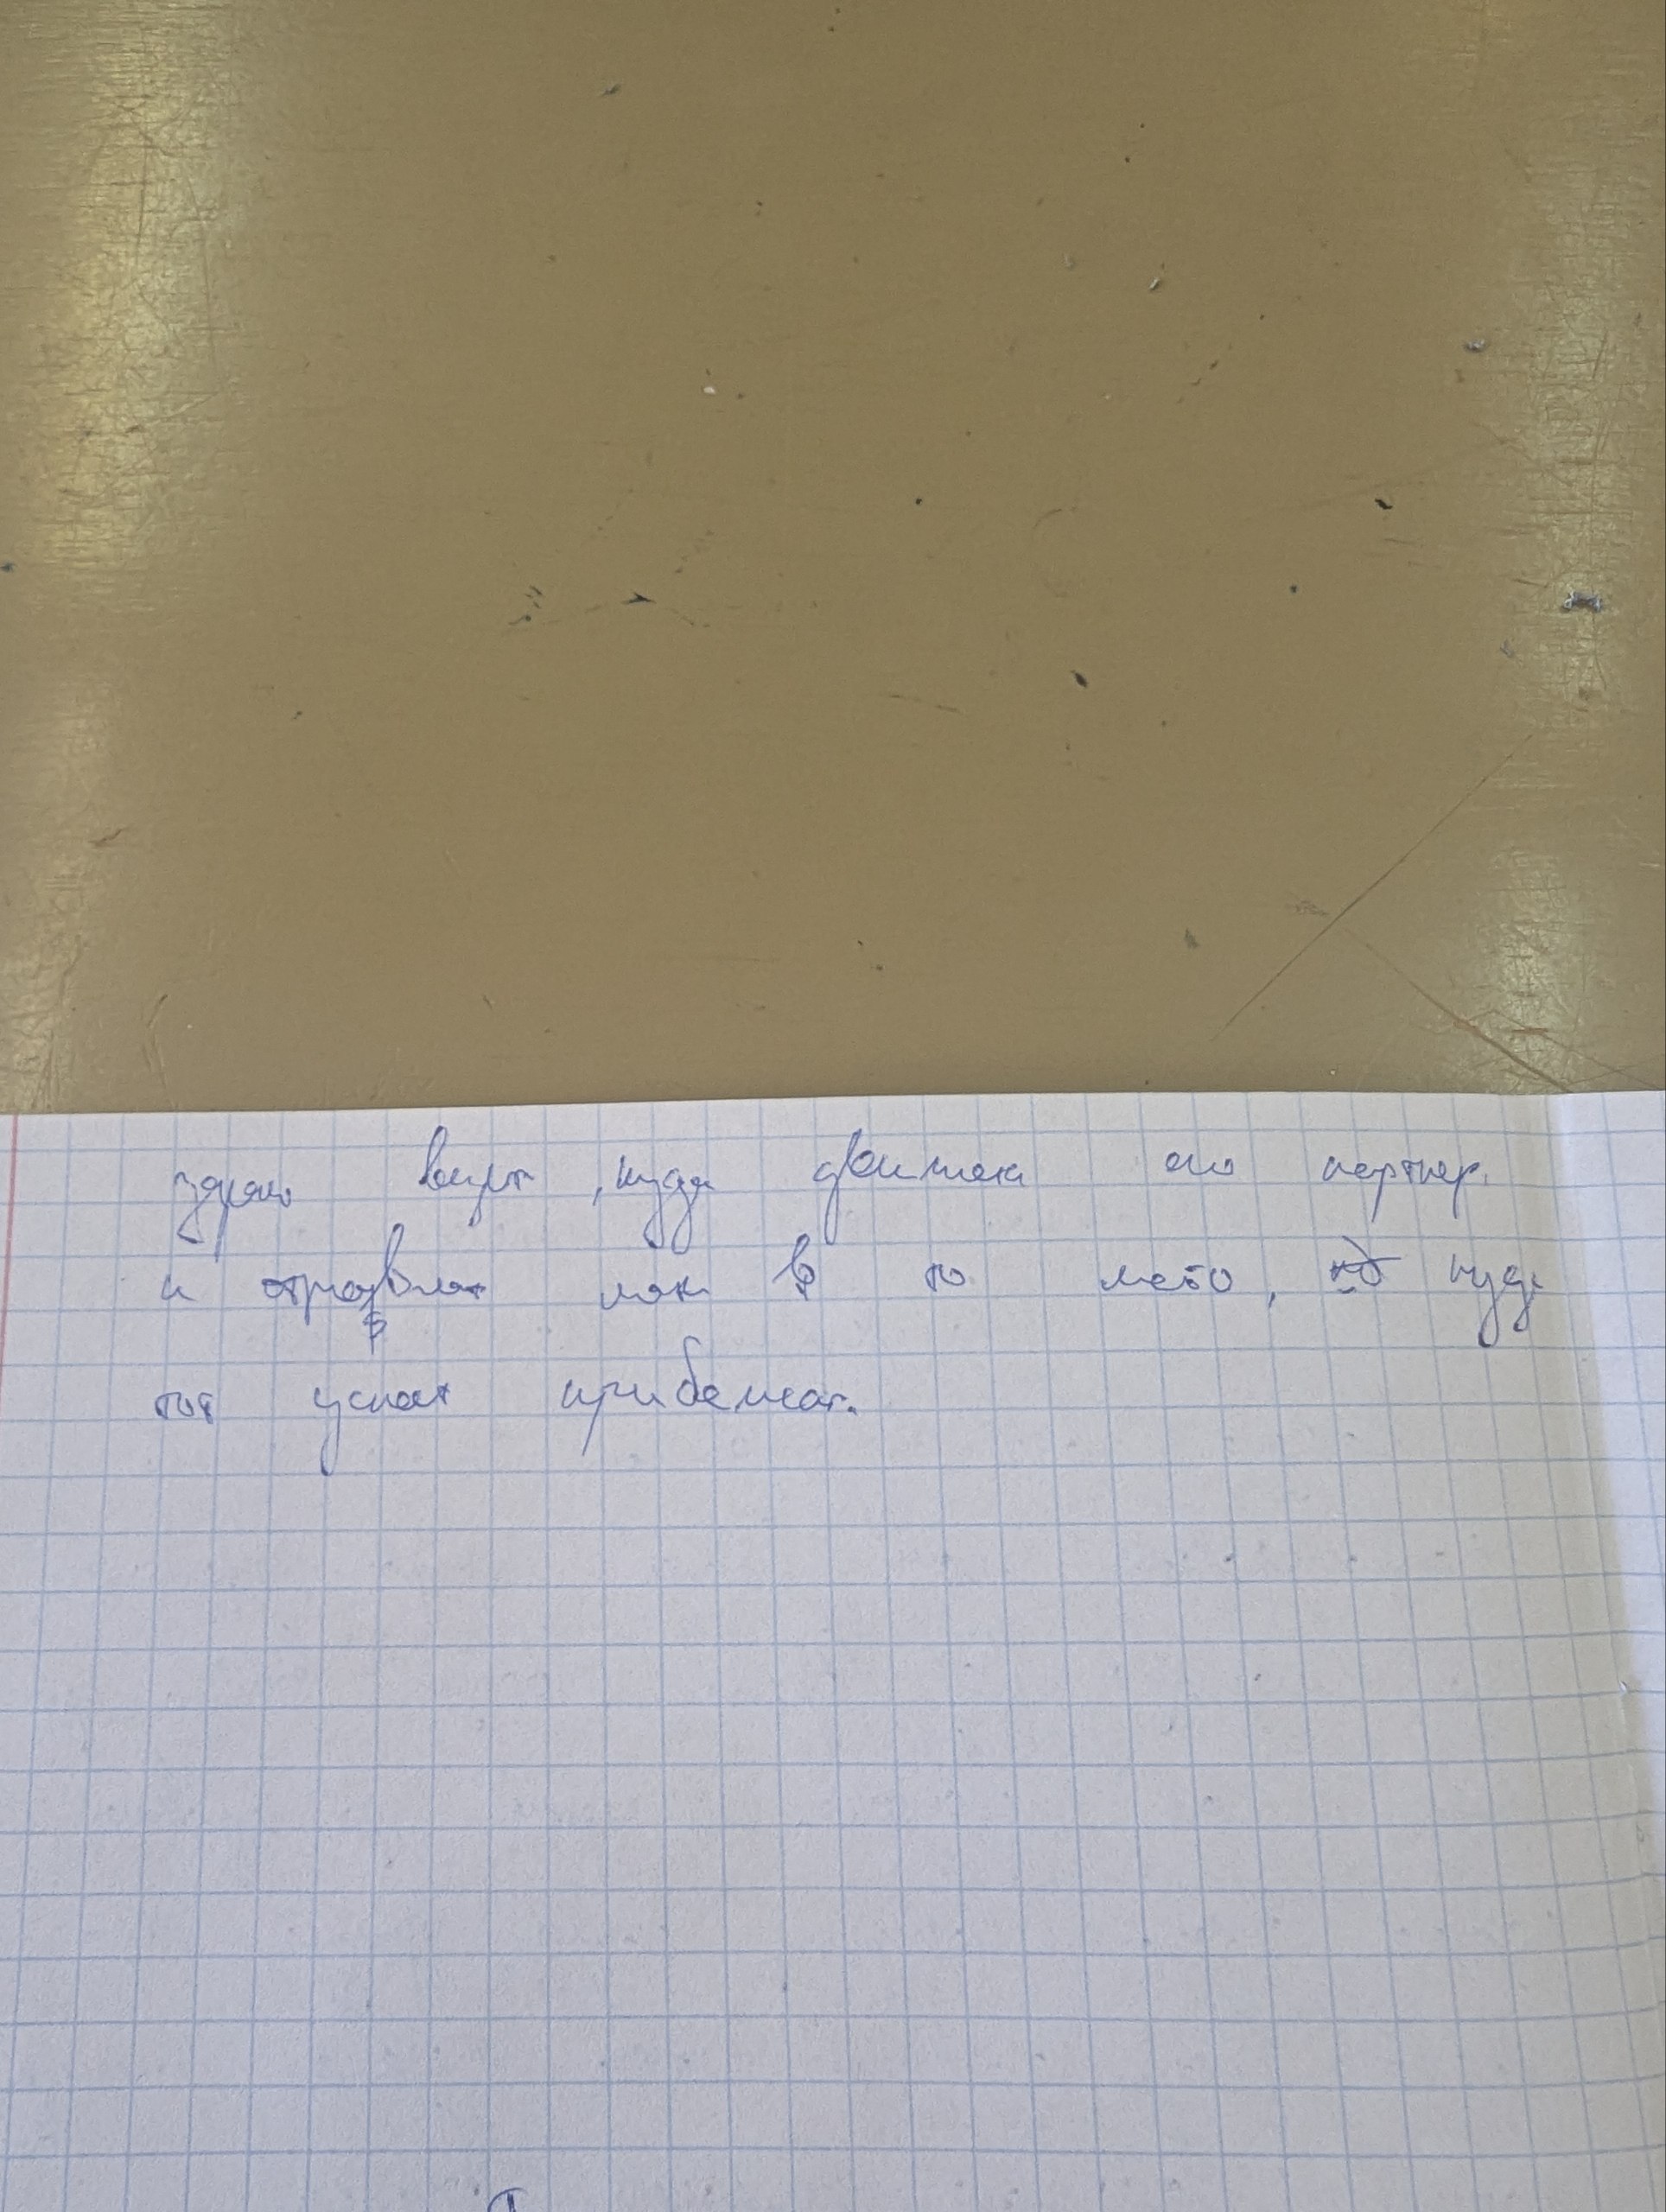 заранее видит, куда движется его партнер
и отправляет мяч в то место, куда
тот успеет прибежать.